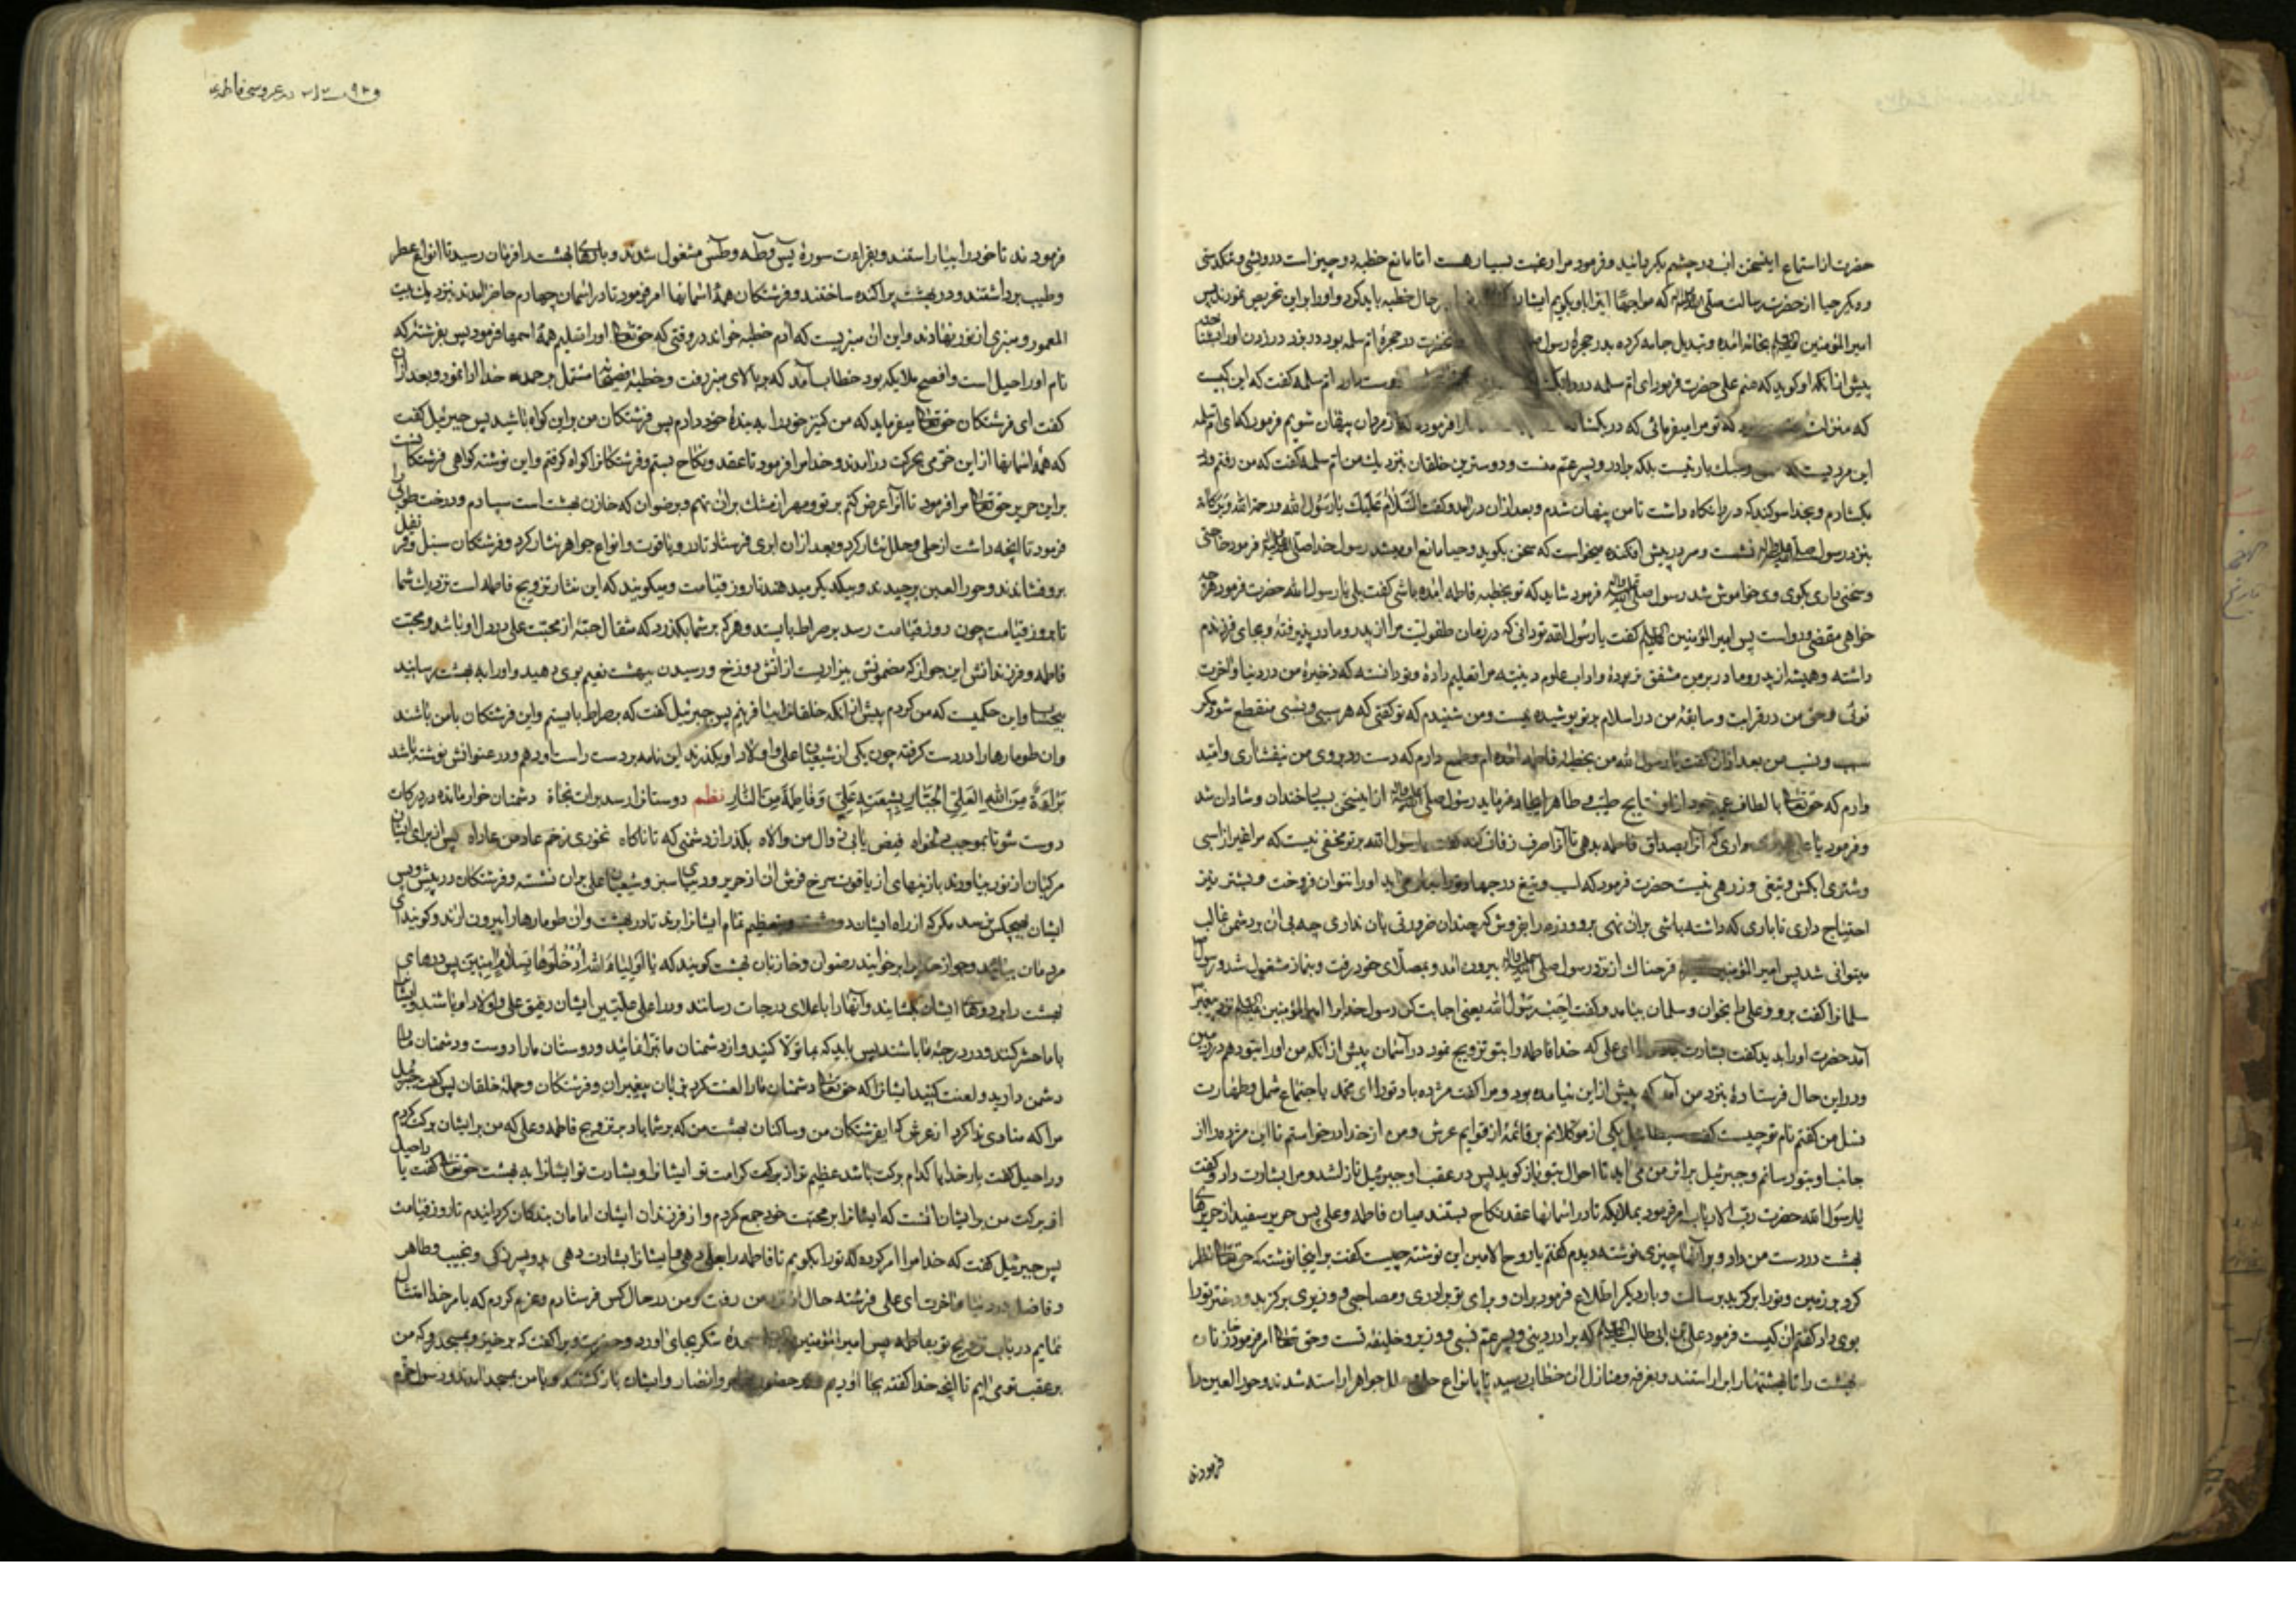 حضرت از استماع این سخن آب در چشم بگردانید و فرمود مرا رغبت بسیار هست اما مانع خطبه دو چیز است درویشی و تنکدستی
و دیگر حیا از حضرت رسالت صلی الله علیه وآله که مواجهة این را باو بگویم ایشان حال خطبه باید کرد و او را بر این تحریص نمودند پس
امیر المؤمنین علیه السلم بخانه آمده و تبدیل جامه کرده بدر حجرهٔ رسول حضرت در حجرهٔ ام سلمه بود در بزد
پیش از آنکه او کوید که منم علی حضرت فرمود ای ام سلمه در را بکشا ام سلمه گفت که این کیست
که تو مرا میفرمائی که در بکشا فرمود که ای ام سلمه
این مردیست که سبک بار نیست بلکه برادر و پسر عم منست و دوسترین خلقان بنزدیک من ام سلمه گفت که من رفتم و در
بکشادم و بخدا سوکند که در را نکاه داشت تا من پنهان شدم و بعد از آن در آمد و گفت السَّلامُ عَلَیْکَ یا رَسُولَ اللهِ ورحمة الله وبرکاته
بنزد رسول صلی الله علیه وآله نشست و سر در پیش افکنده میخواست که سخن بکوید و حیا مانع او میشد رسول خدا صلی الله علیه وآله فرمود حاجتی
و سخنی داری بکوی وی خاموش شد رسول صلی الله علیه وآله فرمود شاید که تو بخطبه فاطمه آمده باشی گفت بلی یا رسول الله حضرت فرمود هر چه
خواهی مقضی و رواست پس امیر المؤمنین علیه السلم گفت یا رسول الله تو دانی که در زمان طفولیت مرا از پدر و مادر پذیرفتهٔ و بجای فرزندم
داشته و همیشه از پدر و مادر بر من مشفق تر بودهٔ و آداب علوم دینیه مرا تعلیم دادهٔ و تو دانسته که ذخیرهٔ من در دنیا و آخرت
توئی و حق من در قرابت و سابقهٔ من در اسلام بر تو پوشیده نیست و من شنیدم که تو گفتی که هر سببی و نسبی منقطع شود مکر
سبب و نسب من بعد از آن گفت یا رسول الله من بخطبهٔ فاطمه آمده ام و طمع دارم که دست رد بروی من نیفشاری و امید
وارم که حق تعالی با لطاف رسول صلی الله علیه وآله از این سخن بسی خندان و شادان شد
و فرمود یا علی داری که آنرا بصداق فاطمه بدهی تا آنرا صرف زفاف کند گفت یا رسول الله بر تو مخفی نیست که مرا غیر از اسبی
و شتری آبکش و تیغی و زرهی نیست حضرت فرمود که اسب و تیغ در جهاد ترا بکار می آید او را نتوان فروخت و شتر نیز
احتیاج داری تا باری که داشته باشی بر آن نهی برو و زره را بفروش که چندان ضرورتی بآن نداری چه بی آن بر دشمن غالب
میتوانی شد پس امیر المؤمنین فرحناک از نزد رسول صلی الله علیه وآله بیرون آمد و بمصلای خود رفت و بنماز مشغول شد و رسول
سلمانرا گفت برو و علی را بخوان و سلمان بیامد و گفت اَجِبْ رَسُولَ الله یعنی اجابت کن رسول خدا را امیر المؤمنین علیه السلم نزد پیغمبر
آمد حضرت او را بدید گفت بشارت ای علی که خدا فاطمه را بتو تزویج نمود در آسمان پیش از آنکه من او را بتو دهم در زمین
و در این حال فرستادهٔ بنزد من آمد که پیش از این نیامده بود و مرا گفت مژده باد تو را ای محمد باجتماع شمل و طهارت
نسل من گفتم نام تو چیست گفت سبطائیل یکی از موکلانم بر قائمهٔ از قوایم عرش و من از خدا درخواستم تا این مژده را از
جانب او بتو رسانم و جبرئیل بر اثر من می آید تا احوال بتو باز کوید پس در عقب او جبرئیل نازل شد و مرا بشارت داد و گفت
یا رسول الله حضرت رب الارباب امر فرمود بملایکه تا در آسمانها عقد نکاح بستند میان فاطمه و علی پس حریر سفید از حریر های
بهشت در دست من داد و بر آنجا چیزی نوشته دیدم گفتم یا روح الامین این نوشته چیست گفت بر اینجا نوشته که حق تعالی نظر
کرد بر زمین و تو را بر کزید برسالت و بار دیکر اطلاع فرمود بر آن و برای تو برادری و مصاحبی و وزیری بر کزید و دختر تو را
بوی داد گفتم آن کیست فرمود علی بن ابی طالب علیه السلم که برادر دینی و پسر عم نسبی و وزیر و خلیفه تست و حق تعالی امر فرمود تا خازنان
بهشت را تا بهشتها را بیاراستند و بغرفه و منازل آن خطاب رسید تا بانواع حلی و حلل جواهر آراسته شدند و حور العین را
فرمودند
و ۹۲ در عروسی فاطمه
فرمودند تا خود را بیاراستند و بقراءت سورهٔ یس و طه و طس مشغول شدند و بادها بهشت را فرمان رسید تا انواع عطر
و طیب برداشتند و در بهشت پراکنده ساختند و فرشتکان همهٔ آسمانها امر فرمود تا در آسمان چهارم حاضر آمدند بنزدیک بیت
المعمور و منبری از نور نهادند و این آن منبریست که آدم خطبه خواند در وقتی که حق تعالی او را تعلیم همهٔ اسمها فرمود پس بفرشتهٔ که
نام او راحیل است و افصح ملایکه بود خطاب آمد که بر بالای منبر رفت و خطبهٔ مشتمل بر حمد خدا ادا نمود و بعد از آن
گفت ای فرشتکان حق تعالی میفرماید که من کنیز خود را به بندهٔ خود دادم پس فرشتکان من بر این کواه باشید پس جبرئیل گفت
که همهٔ آسمانها از این خرمی بحرکت در آمدند و خدا مرا فرمود تا عقد و نکاح بستم و فرشتکانرا کواه کرفتم و این نوشته کواهی فرشتکانست
بر این حریر حق تعالی مرا فرمود تا آنرا عرض کنم بر تو و مهر از مشک بر آن نهم و برضوان که خازن بهشت است سپارم و درخت طوبی را
فرمود تا آنچه داشت از حلی و حلل نثار کرد و بعد از آن ابری فرستاد تا در و یاقوت و انواع جواهر نثار کرد و فرشتکان سنبل و قرنفل
بر وفشاندند و حور العین بر چیدند و بیکدیکر میدهند تا روز قیامت و میکویند که این نثار تزویج فاطمه است نزدیک شما
تا بروز قیامت چون روز قیامت رسد بر صراط بایستد و هر که بر شما بکذرد که مثقال حبهٔ از محبت علی در دل او باشد و محبت
فاطمه و فرزندانش این جواز که مضمونش بیزاریست از آتش دوزخ و رسیدن ببهشت نعیم بوی دهید و او را به بهشت رسانید
بیحساب و این حکمیست که من کردم پیش از آنکه خلقانرا بیافرینم پس جبرئیل گفت که بر صراط بایستم و این فرشتکان با من باشند
و آن طومارها را در دست کرفته چون یکی از شیعیان علی و اولاد او بکذرند این نامه بر دست راست او دهم و در عنوانش نوشته باشد
بَراءَةٌ مِنَ اللهِ العَلِیِّ الجَبّارِ لِشِیعَتِهِ عَلِیٍّ وَفاطِمَةَ مِنَ النّارِ نظم دوستانرا رسد برات نجاة دشمنان خوار مانده در درکات
دوست شو تا بموجب دلخواه فیض یابی ز وال من والاه بکذر از دشمنی که تا ناکاه نخوری زخم عاد من عاداه پس از برای ایشان
مرکبان از نور بیاورند با زینهای از یاقوت سرخ فرش آن از حریر و دیبای سبز و شیعیان علی بر آن نشسته و فرشتکان در پیش و پس
ایشان بهیچکس نرسد مکر که از راه ایشان تمام ایشانرا برند تا در بهشت و آن طومارها را بیرون آرند و کویند ای
مردمان بیائید و جواز ما را بر خوانید رضوان و خازنان بهشت کویند که یا اَوْلِیاءَ الله اُدْخُلُوها بِسَلامٍ آمِنینَ پس درهای
بهشت را بر روی ایشان بکشایند و آنها را باعلای درجات رسانند و در اعلی علیین ایشان رفیق علی و اولاد او باشند و ایشان
با ما حشر کنند و در درجهٔ ما باشند پس باید که بما تولا کنید و از دشمنان ما تبرا نمائید و دوستان ما را دوست و دشمنان ما را
دشمن دارید و لعنت کنید ایشانرا که حق تعالی دشمنان ما را لعنت کرد بزبان پیغمبران و فرشتکان و جملهٔ خلقان پس گفت جبرئیل
مرا که منادی ندا کرد از عرش که ای فرشتکان من و ساکنان بهشت من که بر شما باد بر تزویج فاطمه و علی که من بر ایشان برکت کردم
و راحیل گفت بار خدایا کدام برکت باشد عظیم تر از برکت کرامت تو ایشانرا و بشارت تو ایشانرا به بهشت حق تعالی گفت یا راحیل
اثر برکت من بر ایشان آنست که ایشانرا بر محبت خود جمع کردم و از فرزندان ایشان امامان بندکان کردانیدم تا روز قیامت
پس جبرئیل گفت که خدا مرا امر کرده که تو را بکویم تا فاطمه را بعلی دهی و ایشانرا بشارت دهی بدو پسر زکی و نجیب و طاهر
و فاضل در دنیا و آخرت ای علی فرشته حال از نزد من رفت و من در حال کس فرستادم و عزم کردم که بامر خدا امتثال
نمایم در باب تزویج تو بفاطمه پس امیر المؤمنین سجدهٔ شکر بجای آورد و حضرت ویرا گفت که برخیز و بمسجد رو که من
بر عقب تو می آیم تا آنچه خدا گفته بجا آوریم در حضور مهاجر و انصار و ایشان باز کشتند و با من بمسجد آمدند و رسول حق